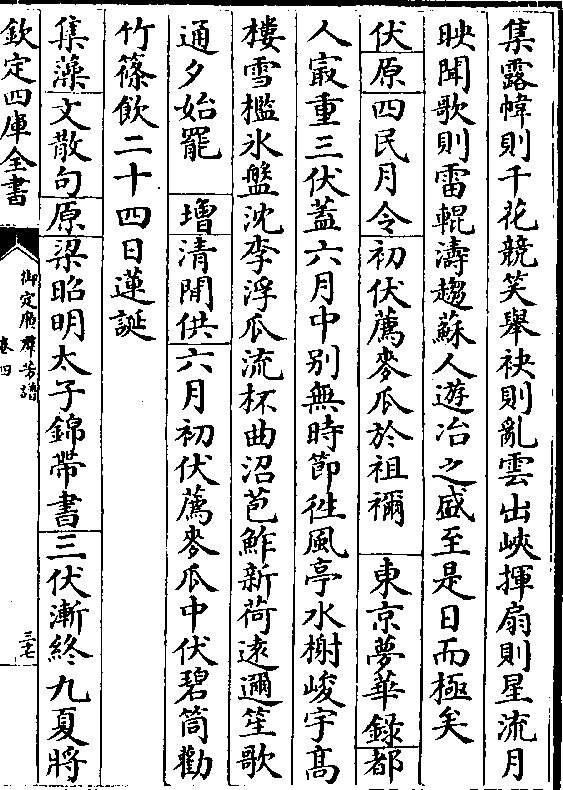 集露幃則千花競笑舉袂則亂雲出峽揮扇則星流月
映聞歌則雷輥濤趨蘇人遊冶之盛至是日而極矣
伏原四民月令初伏薦麥瓜於祖禰　東京夢華錄都
人最重三伏蓋六月中別無時節往風亭水榭峻宇髙
樓雪檻氷盤沈李浮瓜流杯曲沼苞鮓新荷逺邇笙歌
通夕始罷　增清閒供六月初伏薦麥瓜中伏碧筒勸
竹篠飲二十四日蓮誕
集藻文散句原梁昭明太子錦帶書三伏漸終九夏將
欽定四庫全書
御定廣羣芳譜
卷四
三七